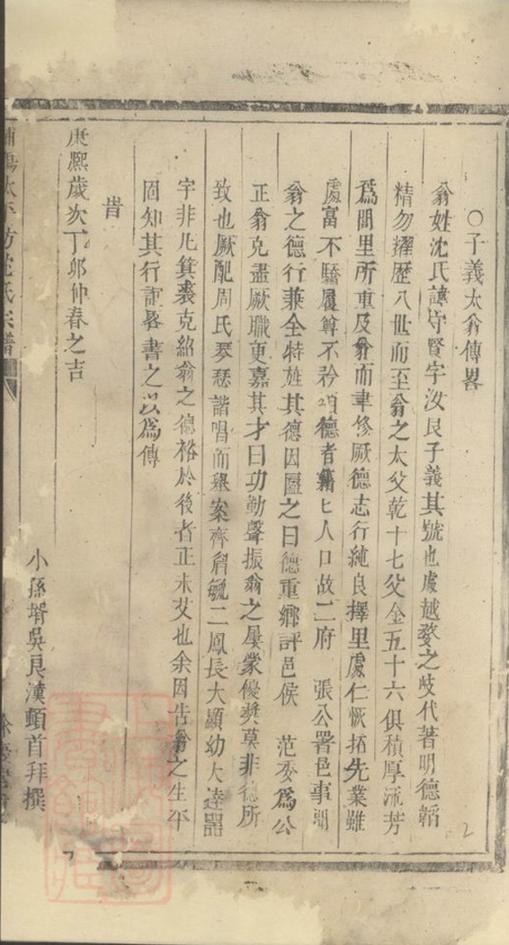 ○子義太翁傳畧
翁姓沈氏諱守賢字汝良子義其號也處越婺之歧代著明德韜
精勿擢歷八世而至翁之太父乾十七父金五十六俱積厚流芳
爲閭里所重及翁而聿修厥德志行純良擇里處仁恢拓先業雖
處富不驕履尊不矜頌德者藉匕人口故二府 張公署邑事聞
翁之德行兼全特旌其德因匾之曰德重鄉評邑侯 范委爲公
正翁克盡厥職更嘉其才曰功勤聲振翁之屢蒙優獎莫非德所
致也厥配周氏琴瑟諧唱而舉案齊眉毓二鳳長大顯幼大達器
宇非凡箕裘克紹翁之德裕於後者正未艾也余因告翁之生平
固知其行誼畧書之以爲傳
旹
康熙歲次丁卯仲春之吉
小孫壻吳良漢頓首拜撰
沈氏宗譜
2